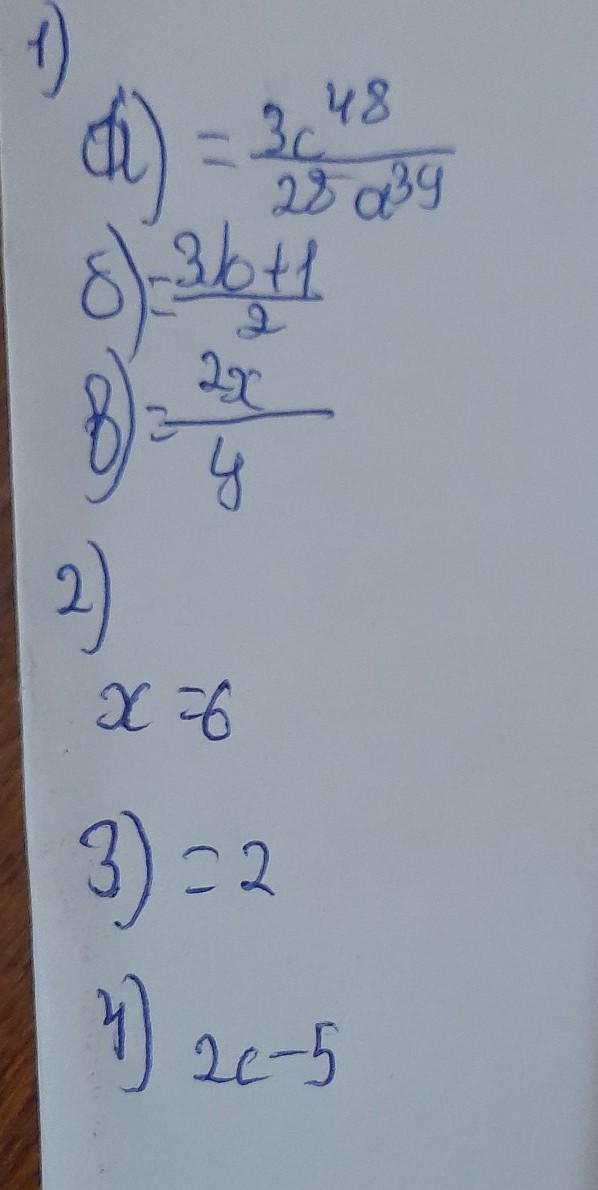 1)
а) = 3c^48 / 28 a^39
б) = 3b+1 / 2
в) = 2x / y
2)
x = 6
3) = 2
4) 2c - 5